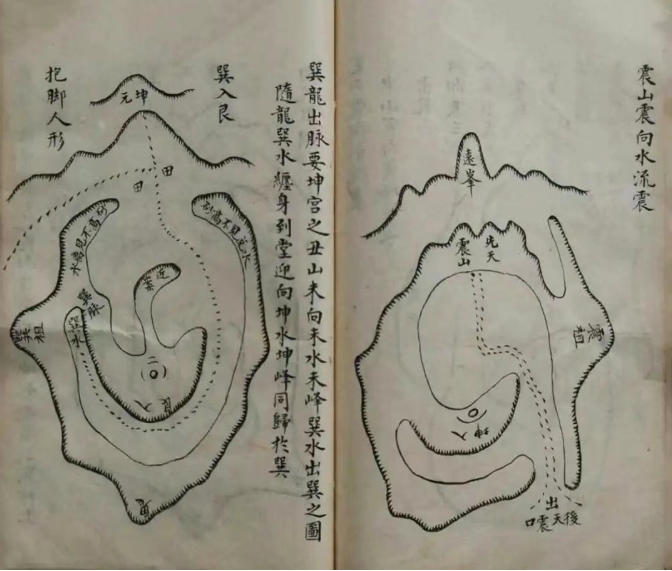 震山震向水流震
遠峰
先天
震山
震祖
坤入
出
後天震口
巽龍出脉要坤宮之丑山未向未水未峰巽水出巽之圖
隨龍巽水纏身到堂迎向坤水坤峰同歸於巽
巽入艮
坤元
抱脚人形
田
田
巽脉
巽水
巽祖
艮入
艮